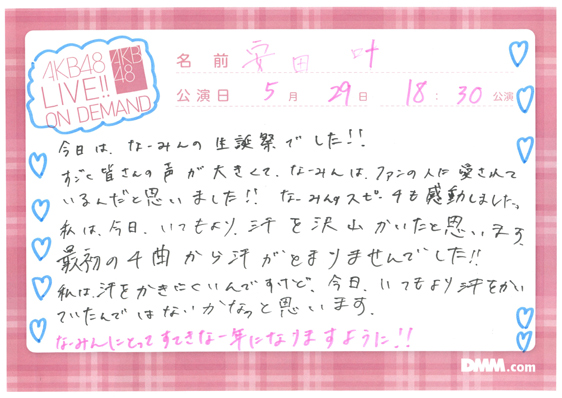 AKB48
LIVE!!
ON DEMAND
AKB
48
名前 安田 叶
公演日 5月 29日 18:30 公演
今日は、なーみんの生誕祭でした!!
すごく皆さんの声が大きくて、なーみんは、ファンの人に愛されて
いるんだと思いました!! なーみんのスピーチも感動しました。
私は、今日、いつもより、汗を沢山かいたと思います。
最初の4曲から汗がとまりませんでした!!
私は、汗をかきにくいんですけど、今日、いつもより汗をかい
ていたんではないかなっと思います。
なーみんにとってすてきな一年になりますように!!
DMM.com